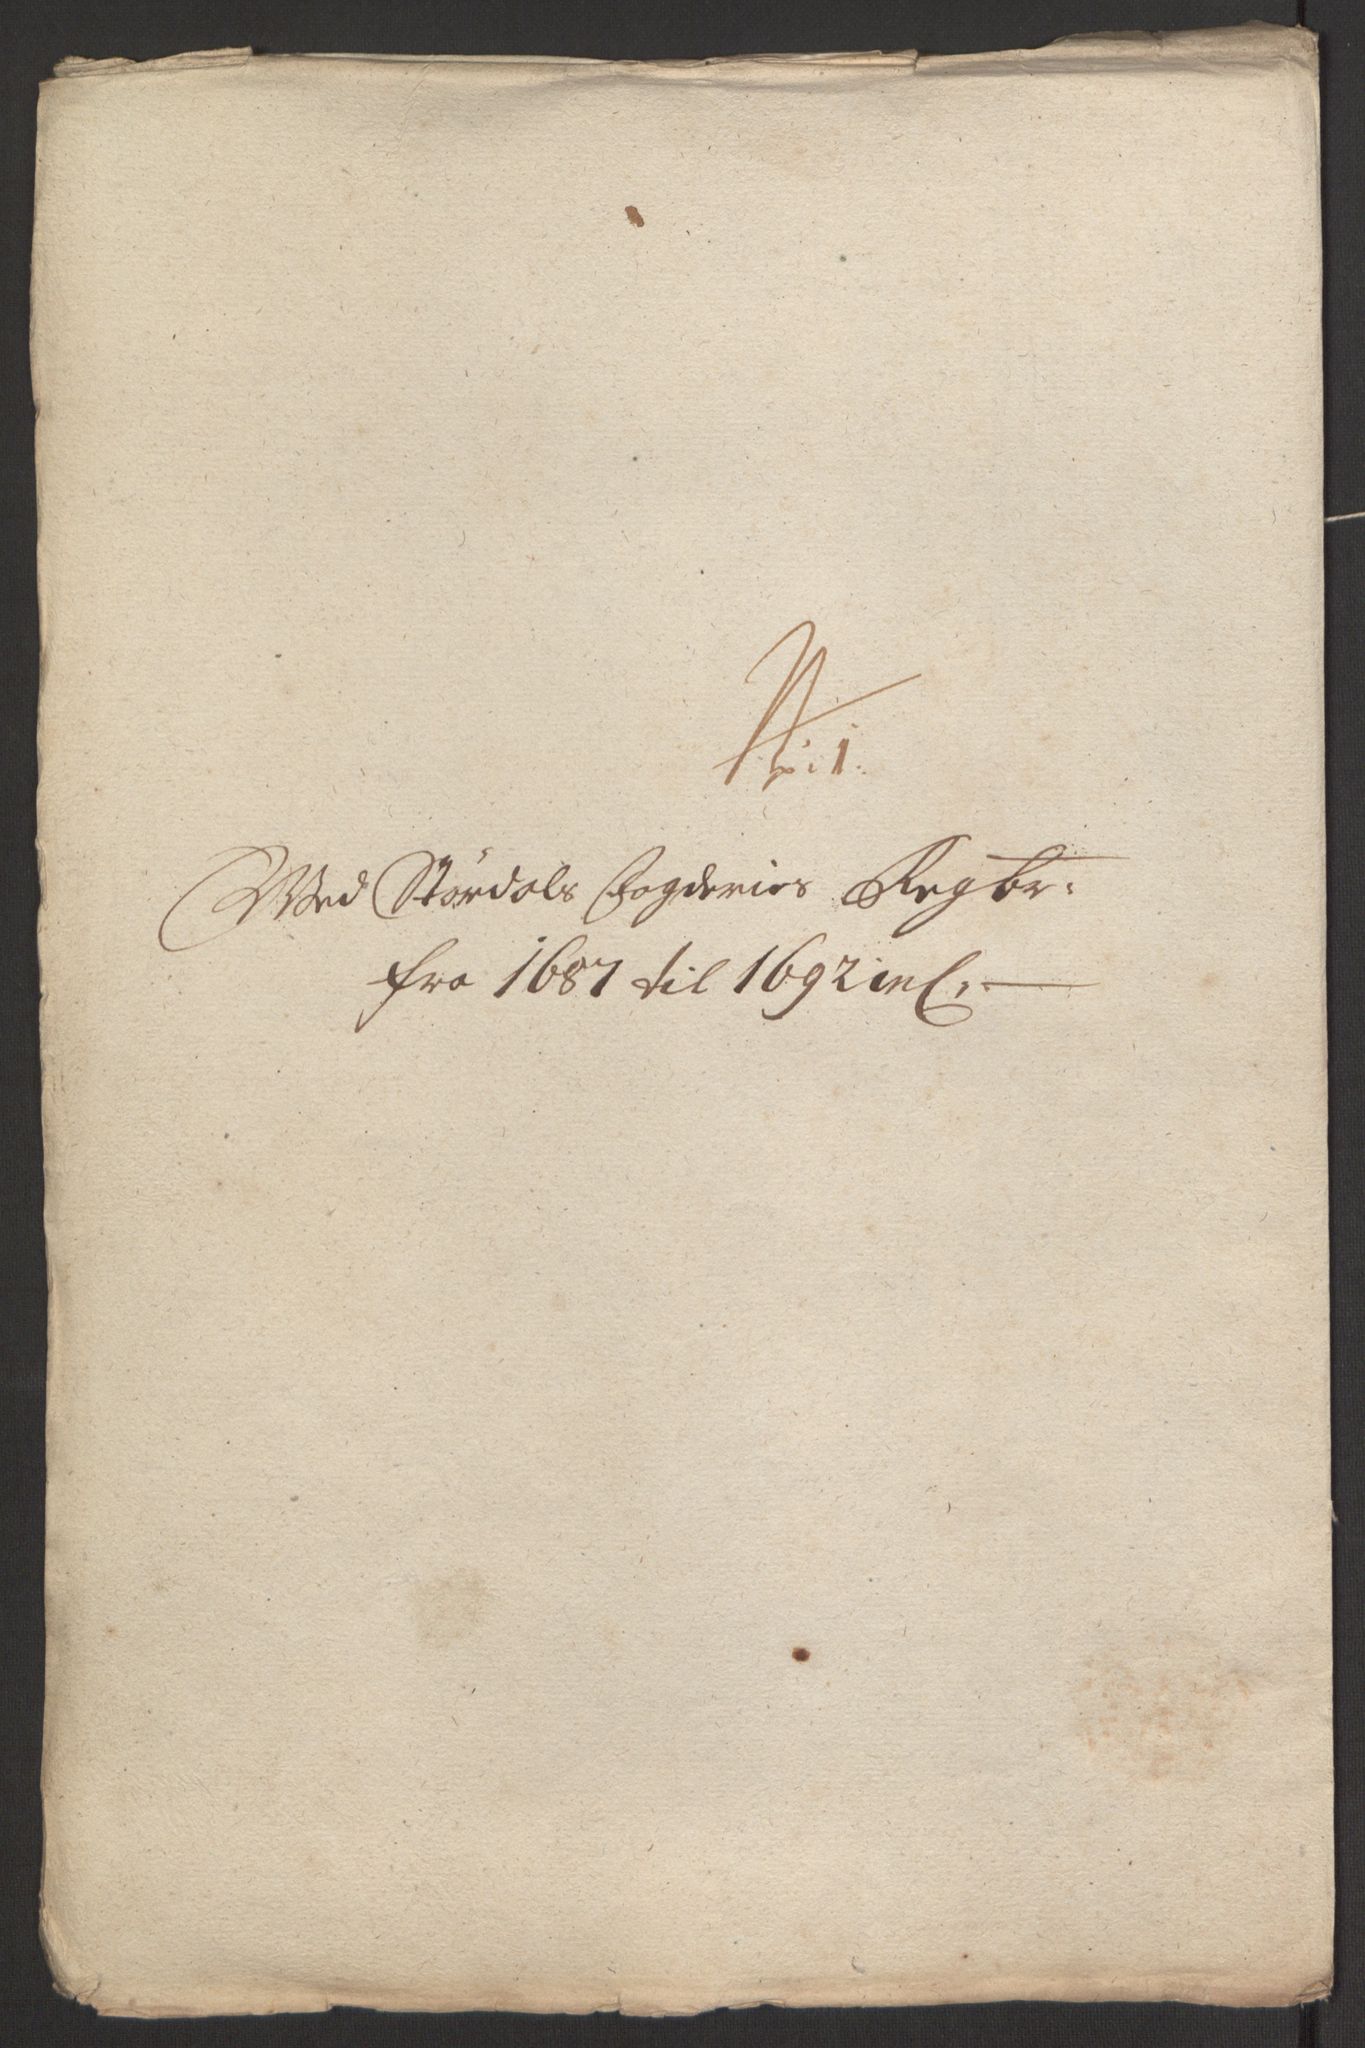 No: 1.
Wed Stördals Fogderies Regbr:
fra 1687 til 1692 incl.